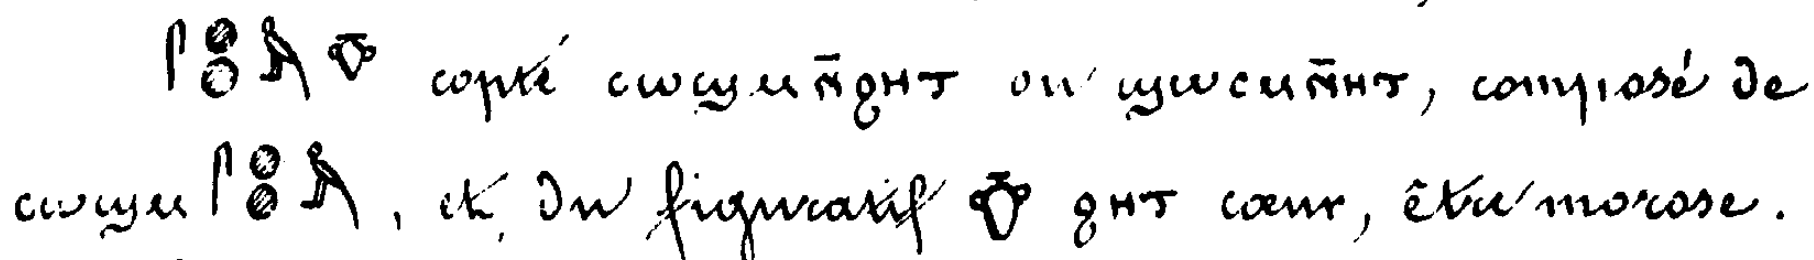 𓋴𓐍𓐍 𓄣 copte ⲥⲱϣⲙⲛ̄ϩⲏⲧ ou ϣⲱⲥⲙⲛ̄ⲏⲧ, composé de
ⲥⲱϣⲙ 𓋴𓐍𓐍, et du figuratif 𓄣 ϩⲏⲧ cœur, être morose.